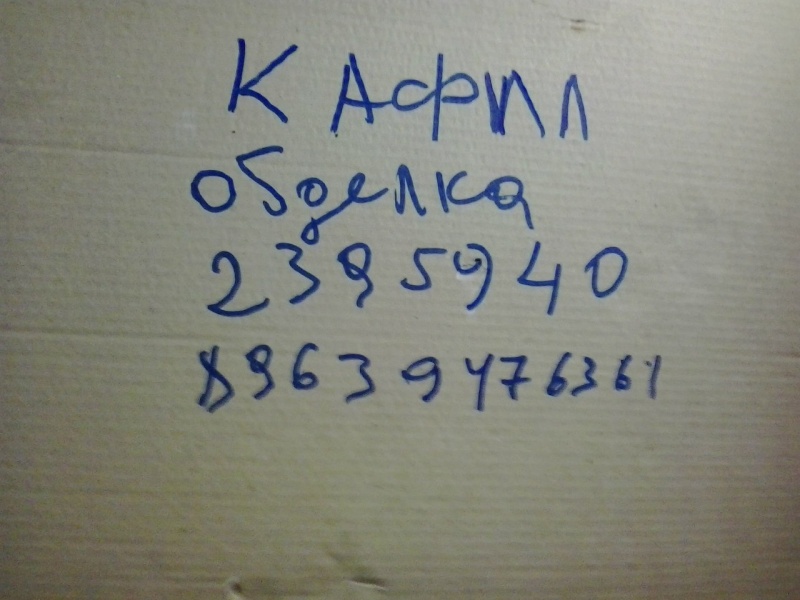 К АФИЛ
обделка
2395940
89639476361